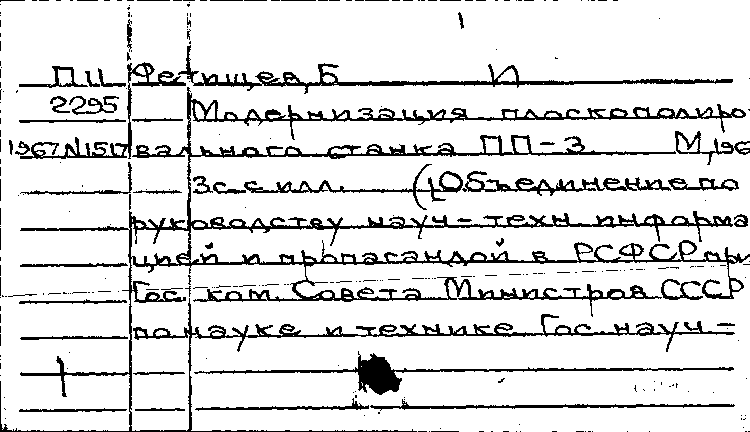 ПЦ Фетищев, Б И
2295 Модернизация плоскополиро
1967 N1517 вального станка ПП-3. М, 196
3с. с илл. ([Объединение по
руководству науч-техн информа
цией и пропагандой в РСФСР при
Гос. ком. Совета Министров СССР
по науке и технике Гос. науч-